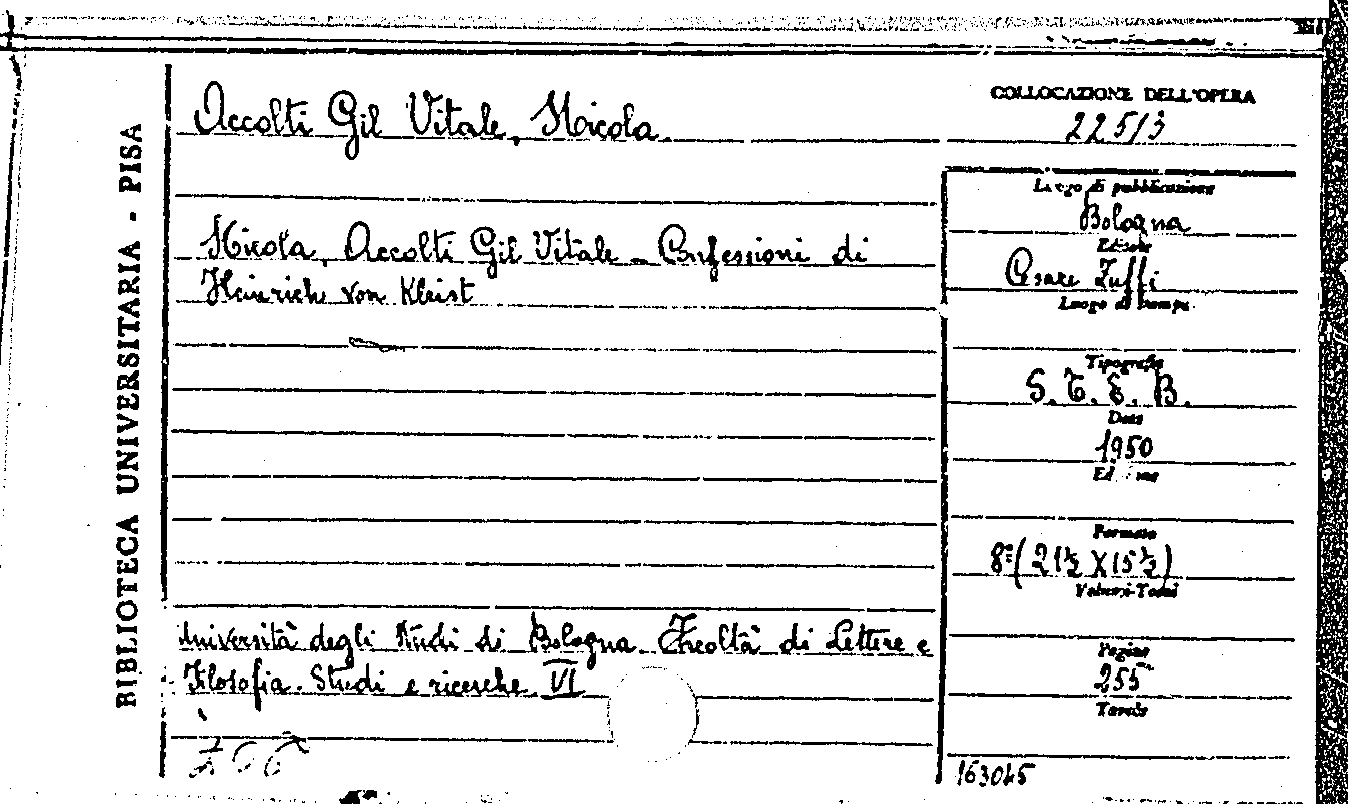 BIBLIOTECA UNIVERSITARIA - PISA
Accolti Gil Vitale, Nicola.
Nicola, Accolti Gil Vitale - Confessioni di
Heinrich von Kleist
Università degli Studi di Bologna. Facoltà di Lettere e
Filosofia. Studi e ricerche. VI
COLLOCAZIONE DELL'OPERA
225/3
Luogo di pubblicazione
Bologna
Editore
Cesare Zuffi
Luogo di stampa
Tipografia
S. T. E. B.
Data
1950
Edizione
Formato
8º (21½ X 15½)
Volumi-Tomi
Pagine
255
Tavole
163045